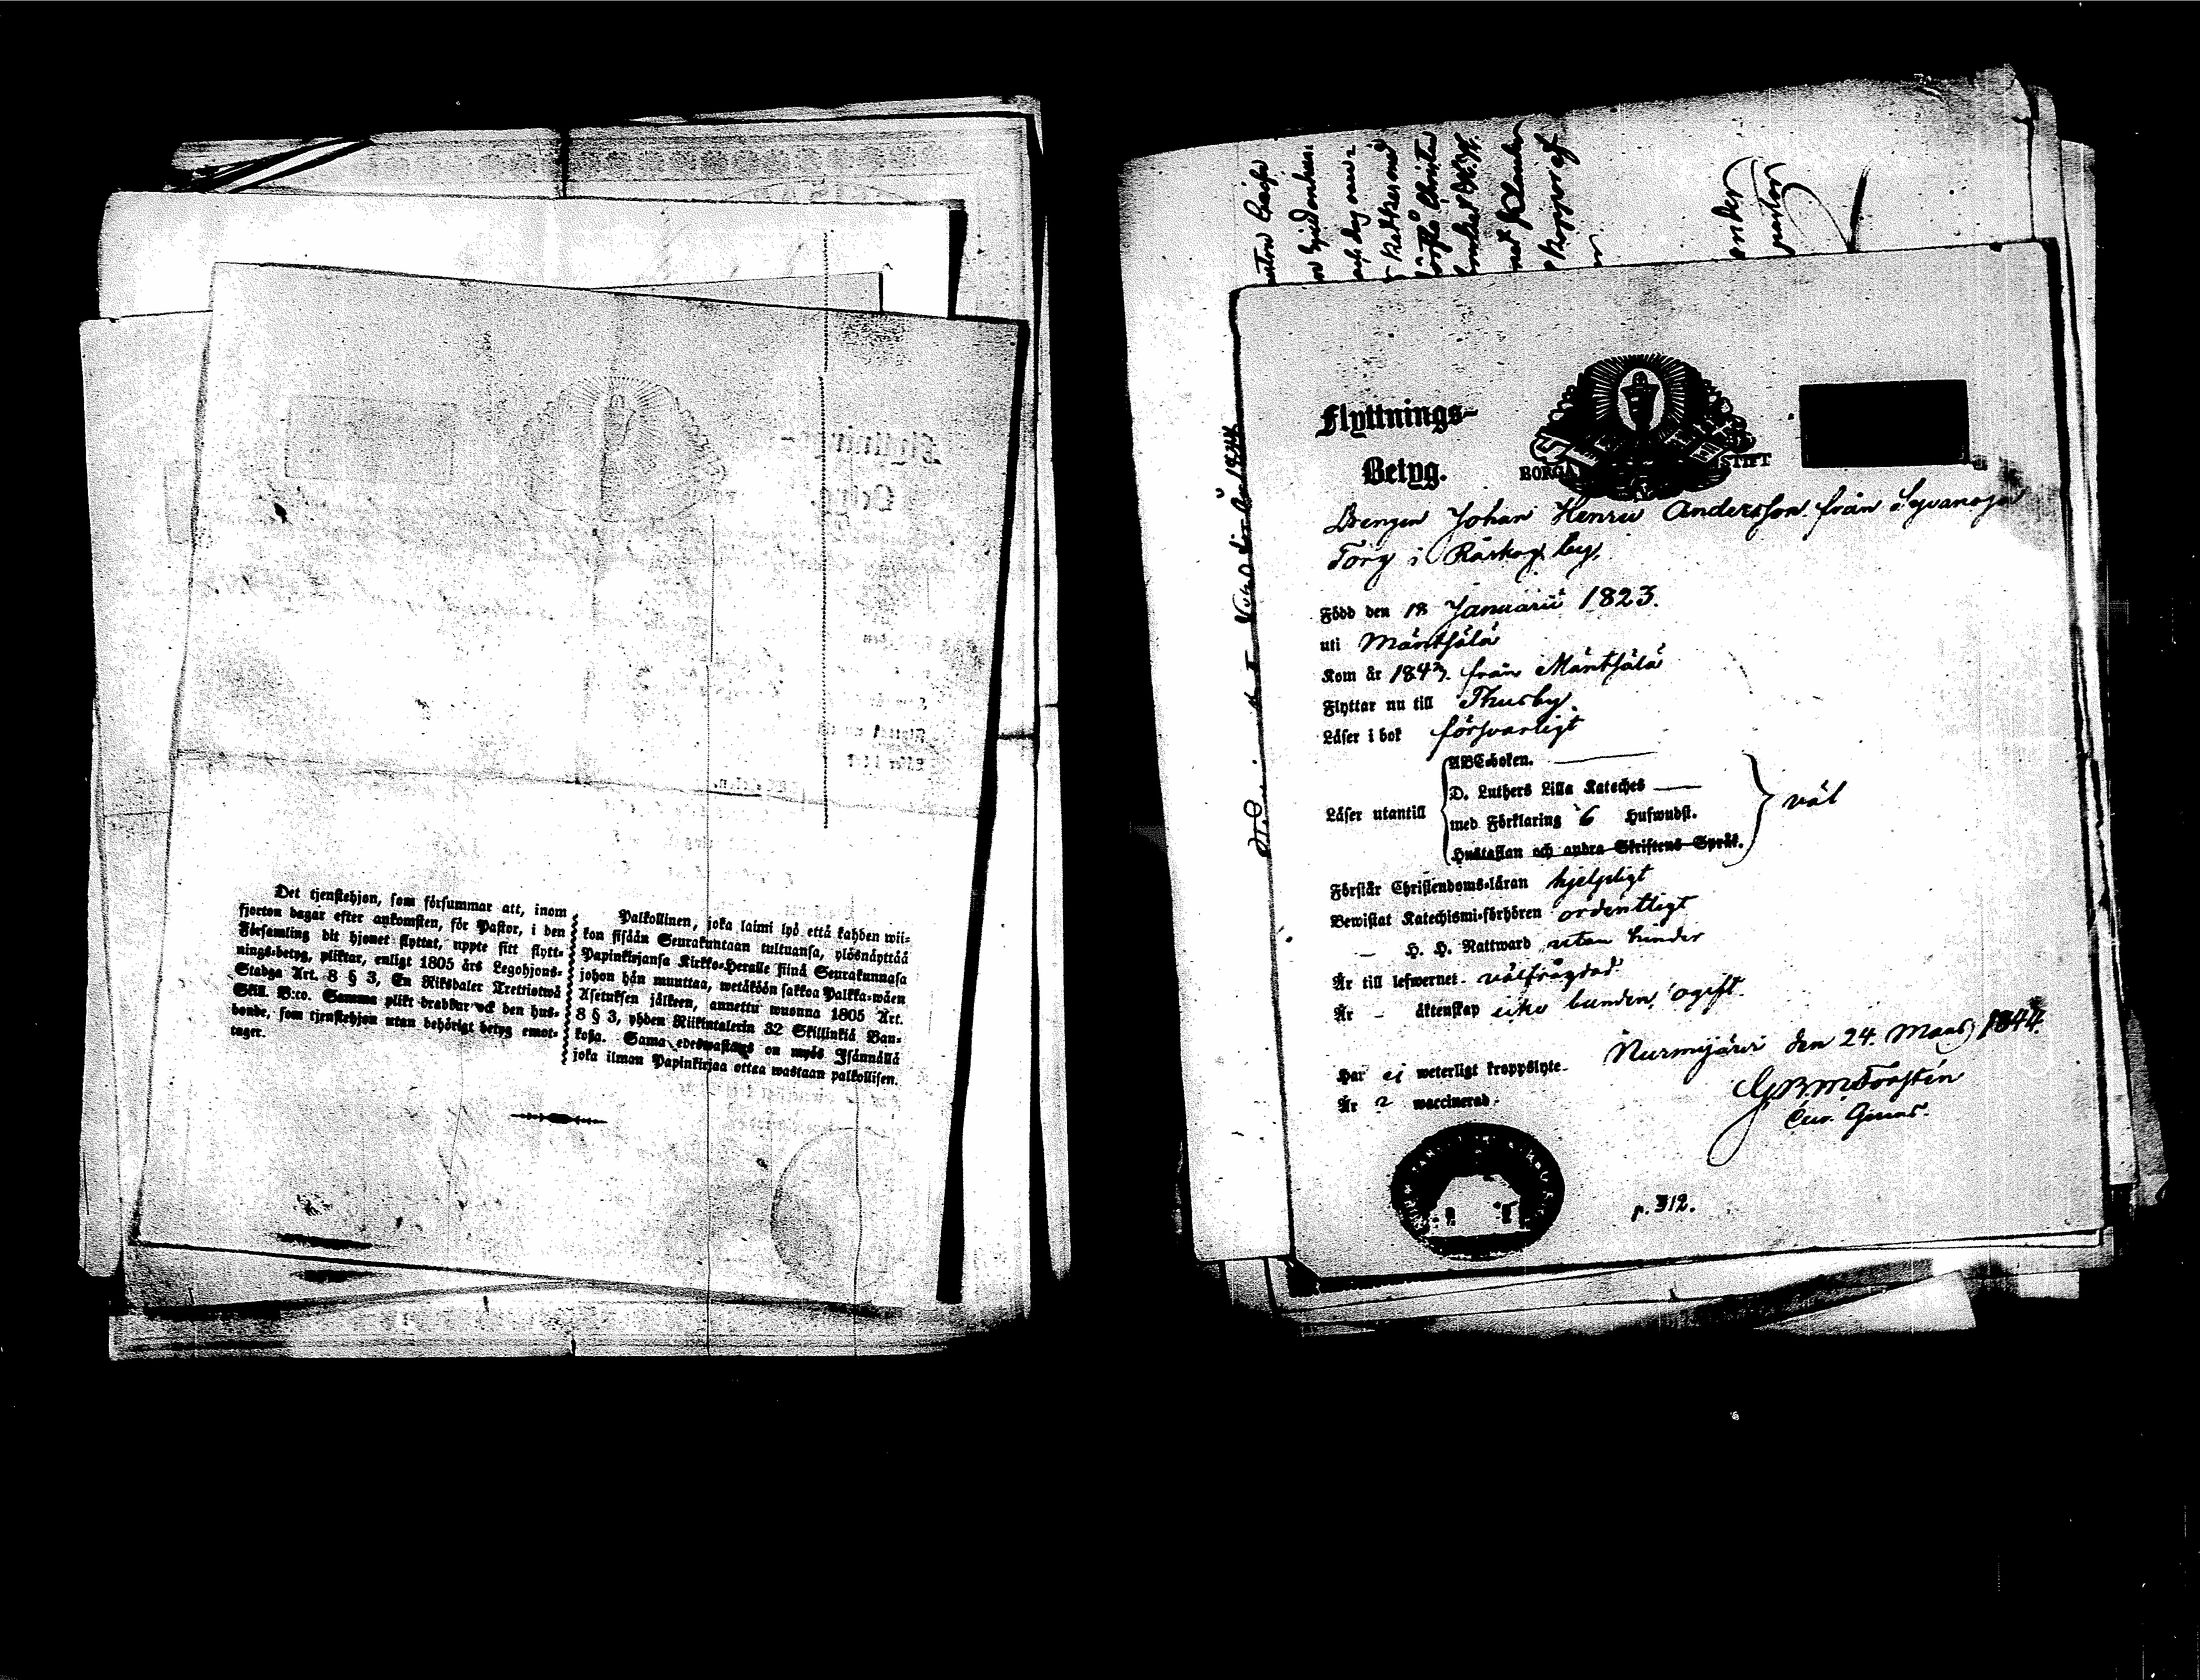 Det tjenstehjon, som försummar att, inom
fjorton dagar efter ankomsten, för Pastor, i den
Församling dit hjonet flyttat, uppte sitt flytt-
nings-betyg, pliktar, enligt 1805 års Legohjons-
Stadga Art. 8 § 3, En Riksdaler Trettiotwå
Skill. B:co. Samma plikt drabbar ock den hus-
bonde, som tjenstehjon utan behörigt betyg emot-
tager.
Palkollinen, joka laimi lyö että kahden wii-
kon sisään Seurakuntaan tultuansa, ylösnäyttää
Papinkirjansa Kirkko-Herralle siinä Seurakunnasa
johon hän muuttaa, wetäköön sakkoa Palkka-wäen
Asetuksen jälkeen, annettu wuonna 1805 Art.
8 § 3, yhden Riikintalerin 32 Skillinkiä Ban-
kosa. Sama edeswastaus on myös Isännällä
joka ilman Papinkirjaa ottaa wastaan palkollisen.
Flyttnings-
Betyg.
BORGÅ STIFT
Drengen Johan Henric Andersson från
Torg i Råskog by.
Född den 18 Januarii 1823.
uti Mäntsälä
Kom år 1843 från Mäntsälä
Flyttar nu till Thusby.
Läser i bok försvarligt
Läser utantill
ABC-boken.
D. Luthers Lilla Kateches
med Förklaring 6 Hufwudst.
Hustaflan och andra Skriftens Språk.
väl
Förstår Christendoms-läran hjelpligt
Bewistat Katechismi-förhören ordentligt
H. H. Nattward utan hinder
Är till lefwernet välfrägdad
Är äktenskap icke bunden, ogift.
Har ej weterligt kroppslyte
Är waccinerad
Nurmijärvi den 24. Mars 1844.
p. 312.